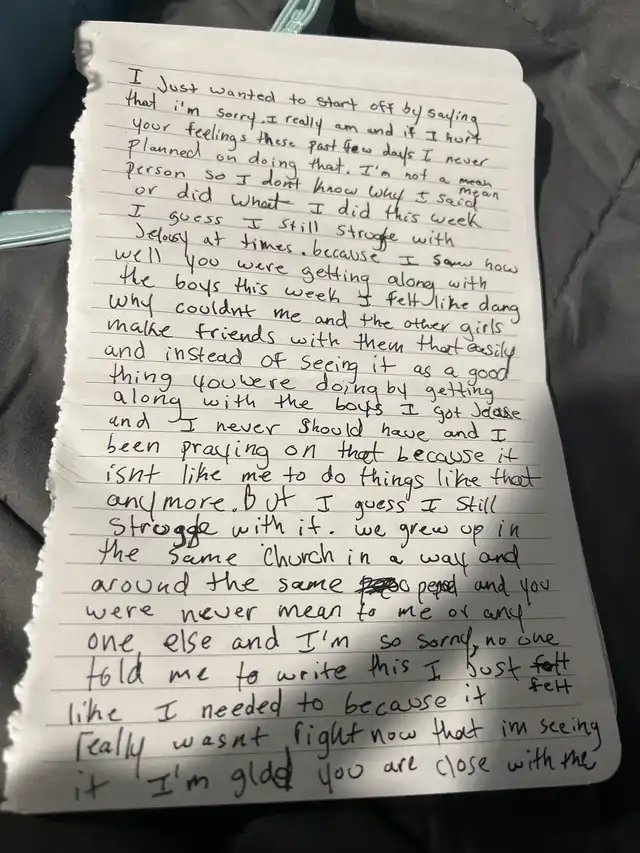 I Just wanted to start off by saying
that i'm sorry. I really am and if I hurt
your feelings these past few days I never
planned on doing that. I'm not a mean
mean
person so I don't know why I said
or did what I did this week
I guess I still
with
Jelousy at times. because I saw how
well you were getting along with
the boys this week I felt like dang
why couldnt me and the other girls
make friends with them that easily
and instead of seeing it as a good
thing you were doing by getting
along with the boys I got
and I never should have and I
been praying on that because it
isnt like me to do things like that
anymore. but I guess I still
with it. we grew up in
the same church in a way and
around the same and you
were never mean to me or any
one else and I'm so sorry, no one
told me to write this I Just felt
felt
like I needed to because it
really wasnt right now that im seeing
it I'm glad you are close with the